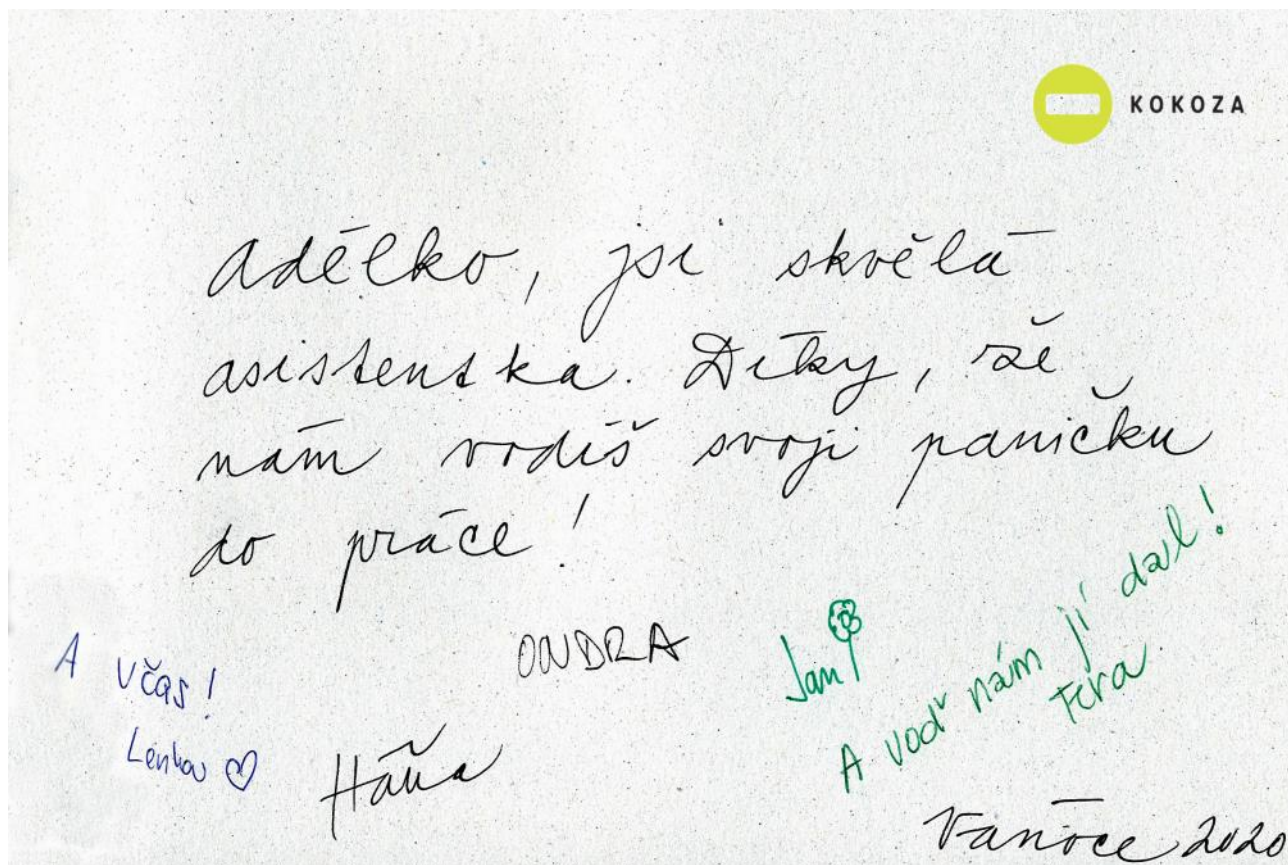 KOKOZA
Adélko, jsi skvělá
asistentka. Díky, že
nám vodíš svoji paničku
do práce!
A včas!
Lenka
ONDRA
Háňa
Jan
A voď nám jí dál!
Vánoce 2020